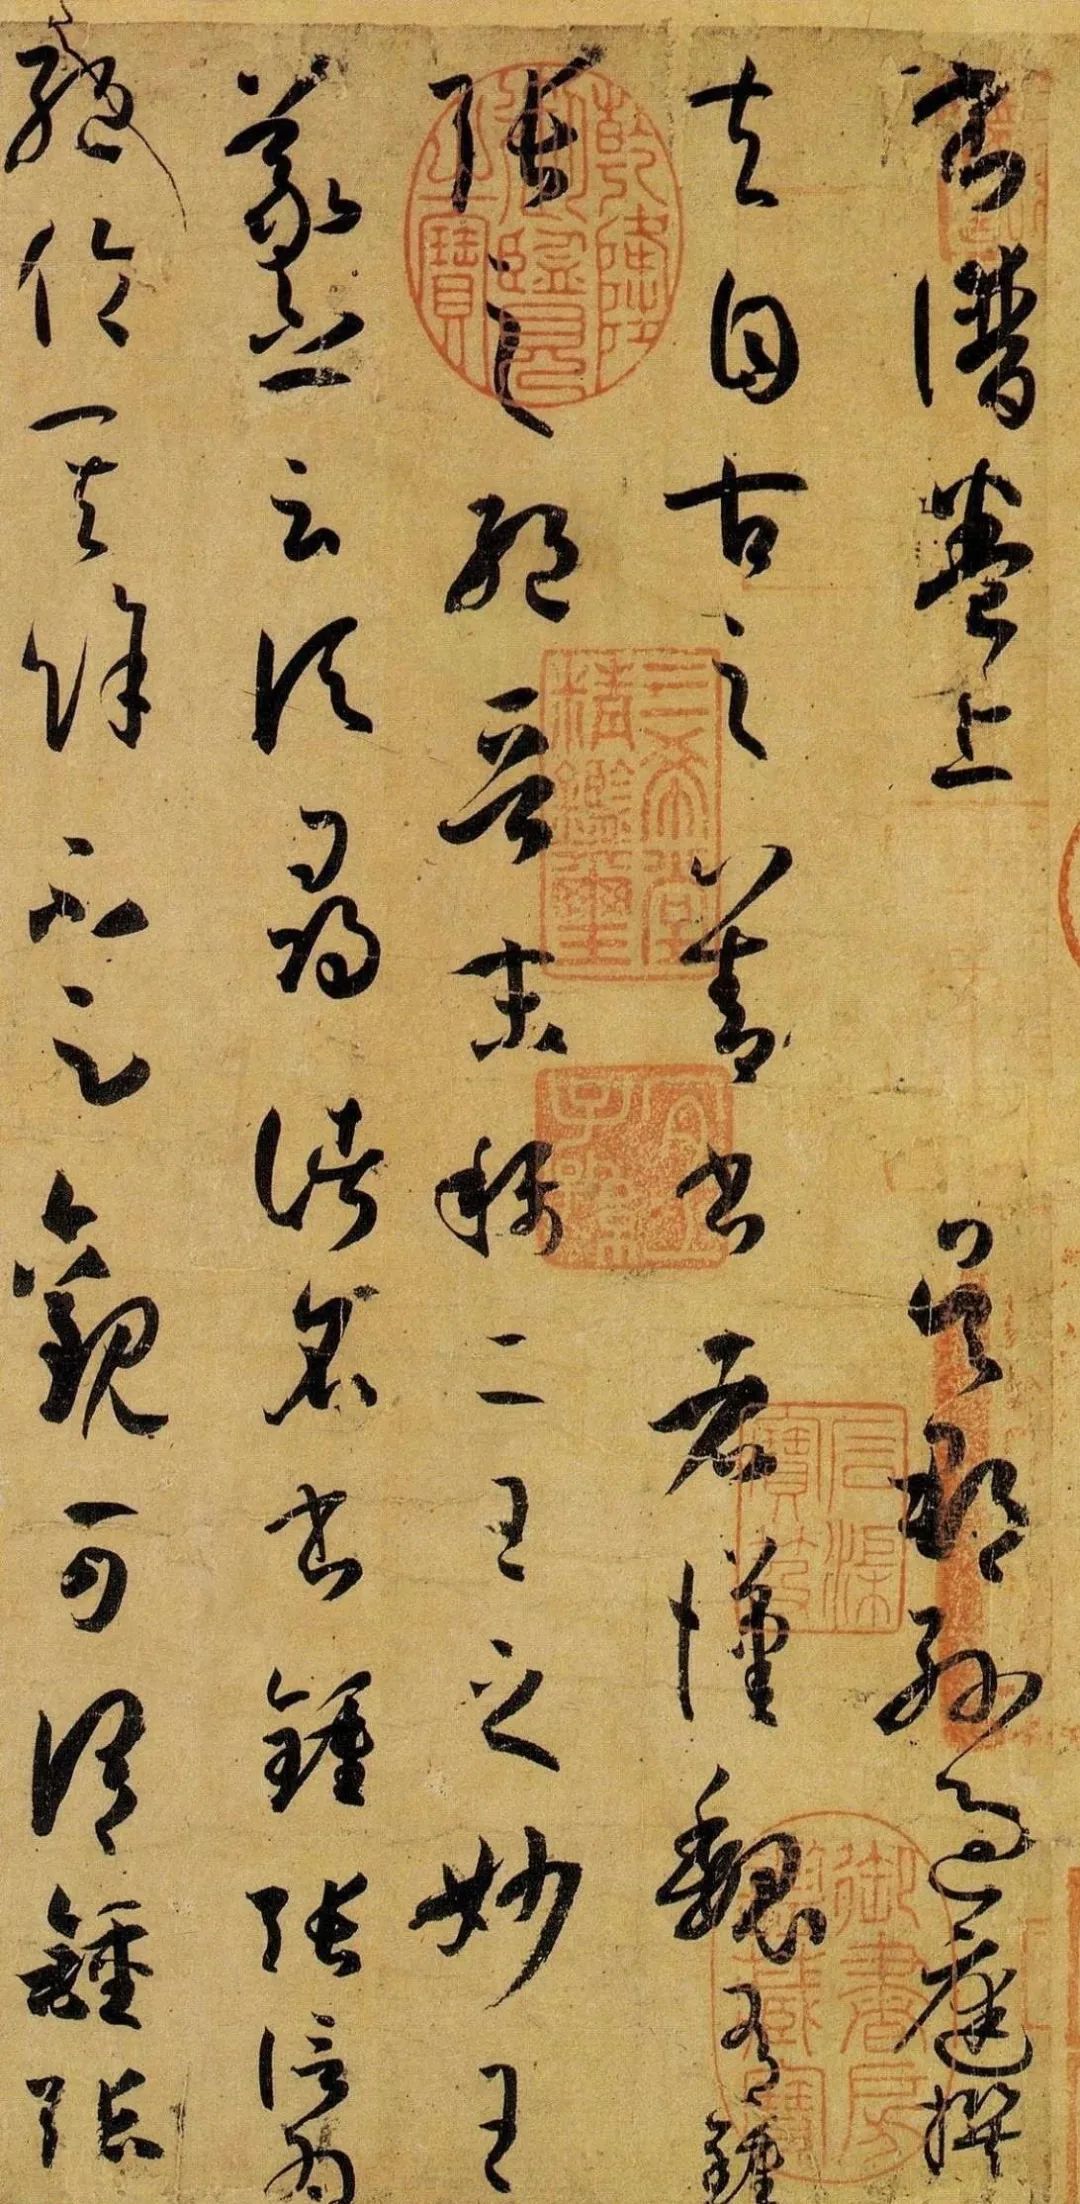 書譜卷上 吳郡孫過庭撰
夫自古之善書者漢魏有鍾
張之絕晉末稱二王之妙王
羲之云頃尋諸名書鍾張信為
絕倫其餘不足觀可謂鍾張
乾隆御覽之寶
三希堂精鑑璽
宜子孫
御書房鑑藏寶